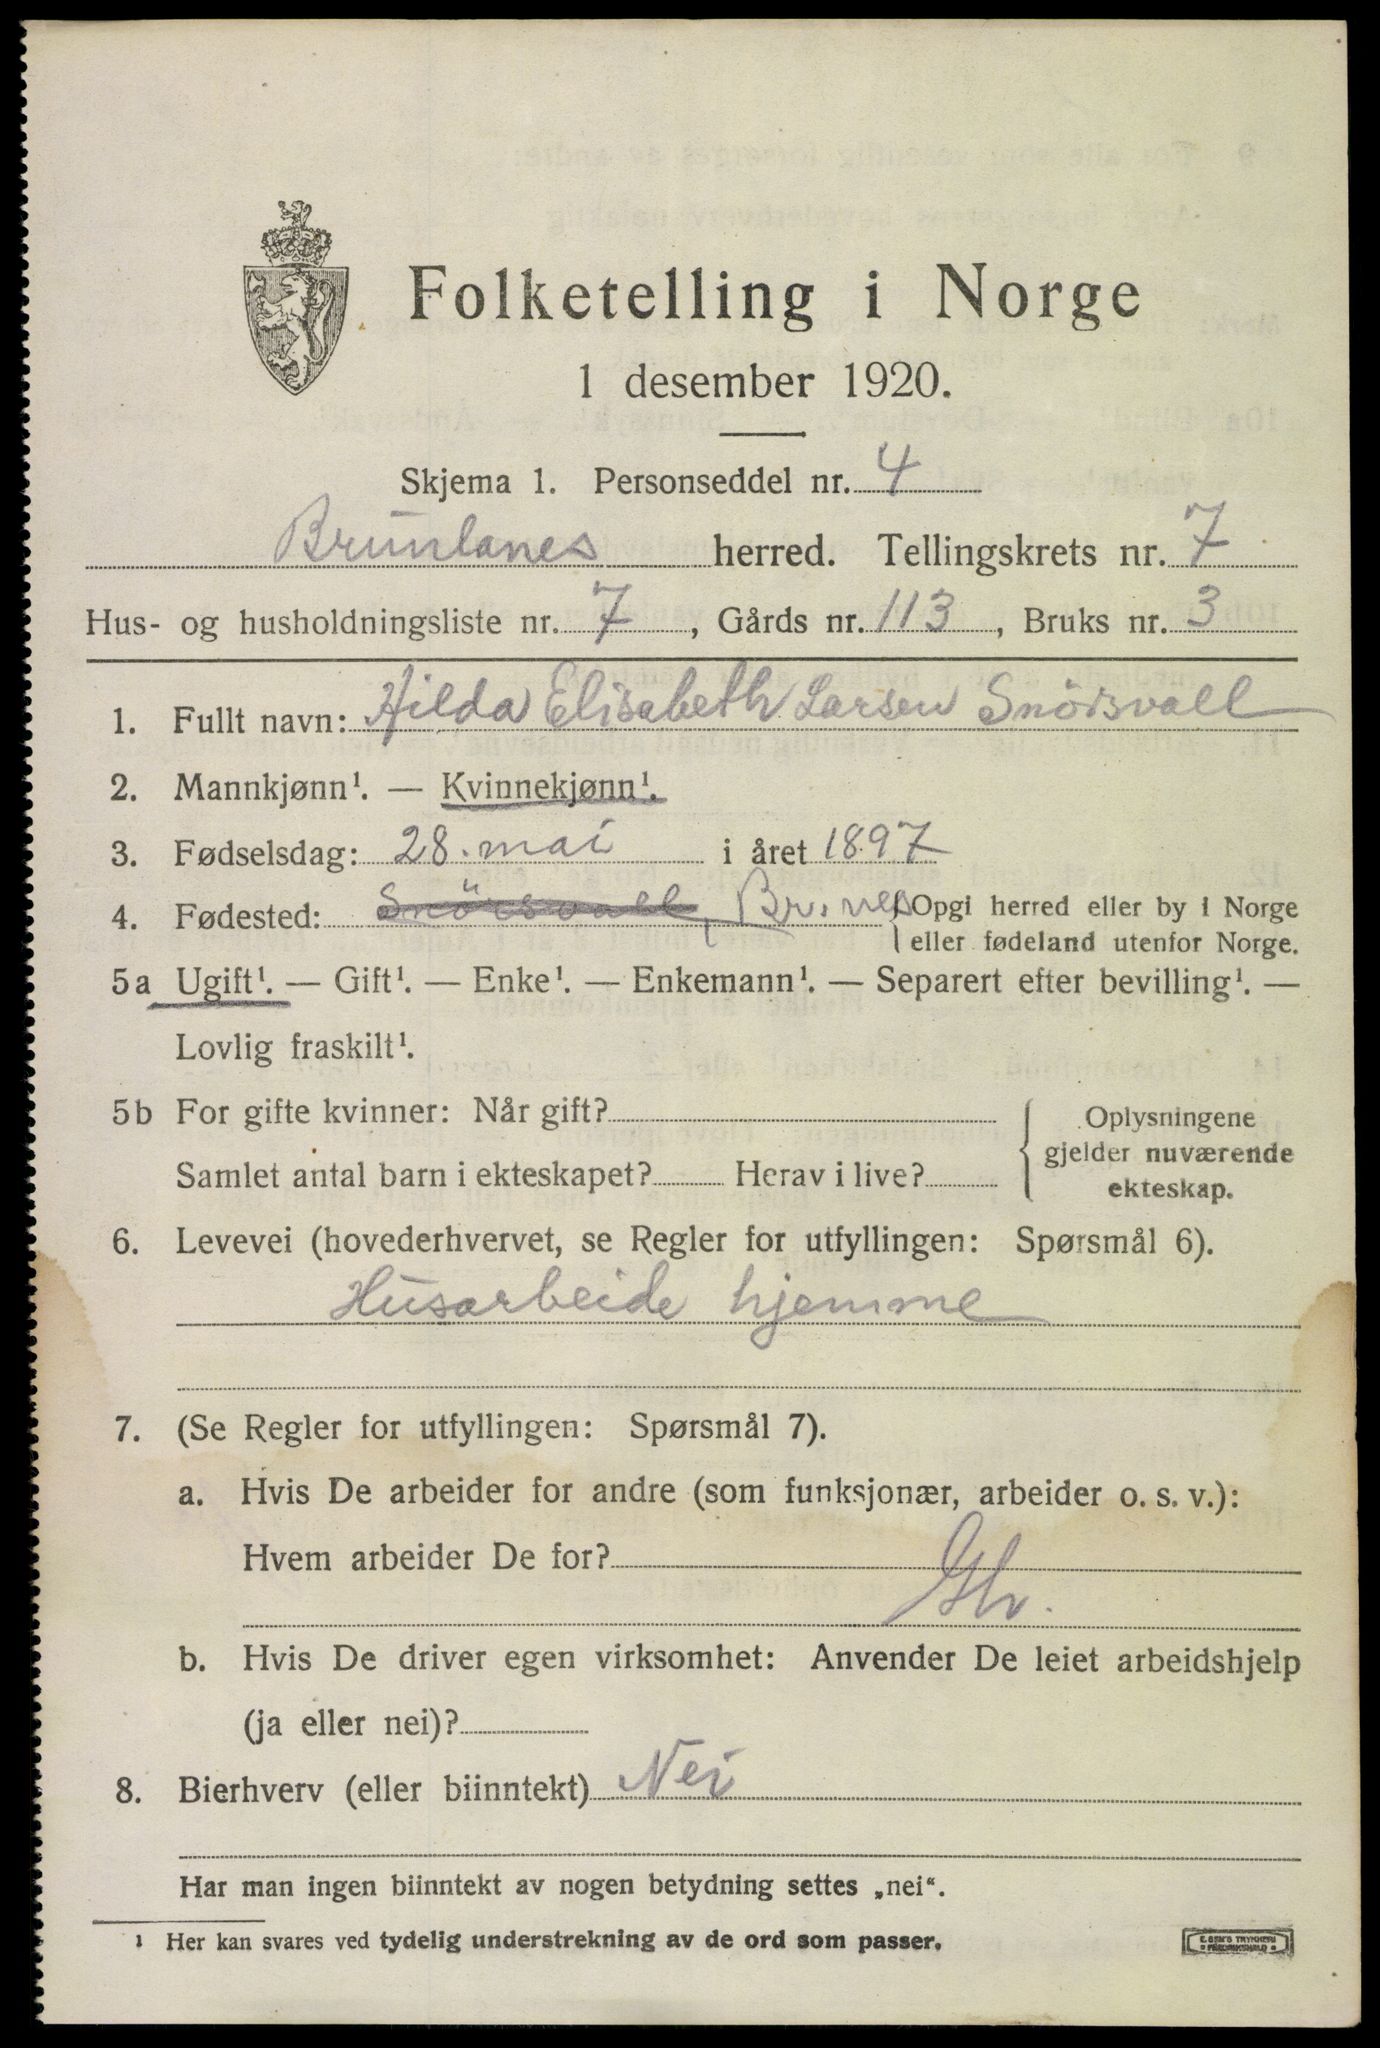 Folketelling i Norge
1 desember 1920.
Skjema 1. Personseddel nr. 4
Brunlanes herred. Tellingskrets nr. 7
Hus- og husholdningsliste nr. 7, Gårds nr. 113, Bruks nr. 3
1. Fullt navn: Hilda Elisabeth Larsen Snörsvall
2. Mannkjønn¹. — Kvinnekjønn¹.
3. Fødselsdag: 28. mai i året 1897
4. Fødested: Snörsvall, Br.nes { Opgi herred eller by i Norge
eller fødeland utenfor Norge.
5a Ugift¹. — Gift¹. — Enke¹. — Enkemann¹. — Separert efter bevilling¹. —
Lovlig fraskilt¹.
5b For gifte kvinner: Når gift?
Samlet antal barn i ekteskapet? Herav i live?
Oplysningene
gjelder nuværende
ekteskap.
6. Levevei (hovederhvervet, se Regler for utfyllingen: Spørsmål 6).
Husarbeide hjemme
7. (Se Regler for utfyllingen: Spørsmål 7).
a. Hvis De arbeider for andre (som funksjonær, arbeider o. s. v.):
Hvem arbeider De for?
b. Hvis De driver egen virksomhet: Anvender De leiet arbeidshjelp
(ja eller nei)?
8. Bierhverv (eller biinntekt) Nei
Har man ingen biinntekt av nogen betydning settes „nei“.
¹ Her kan svares ved tydelig understrekning av de ord som passer.